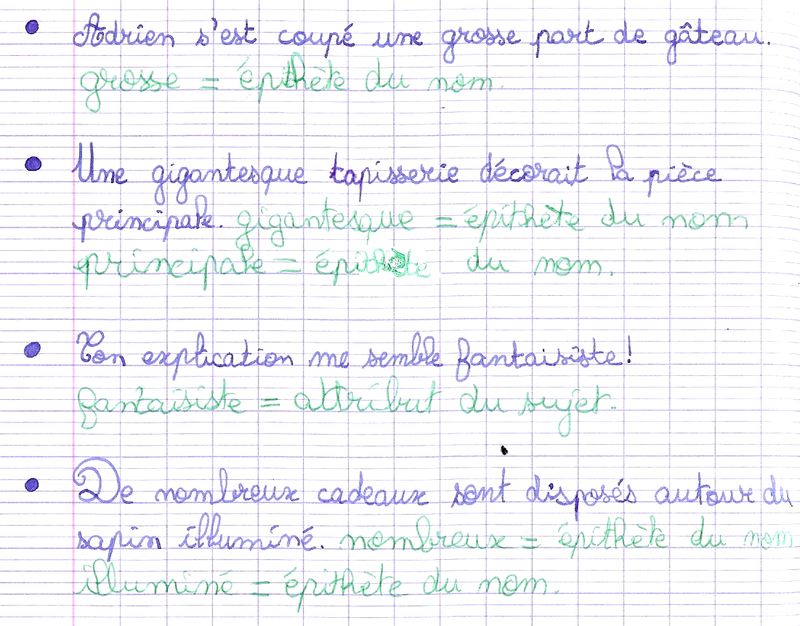 • Adrien s'est coupé une grosse part de gâteau.
grosse = épithète du nom.
• Une gigantesque tapisserie décorait la pièce
principale. gigantesque = épithète du nom
principale = épithète du nom.
• Ton explication me semble fantaisiste!
fantaisiste = attribut du sujet.
• De nombreux cadeaux sont disposés autour du
sapin illuminé. nombreux = épithète du nom
illuminé = épithète du nom.